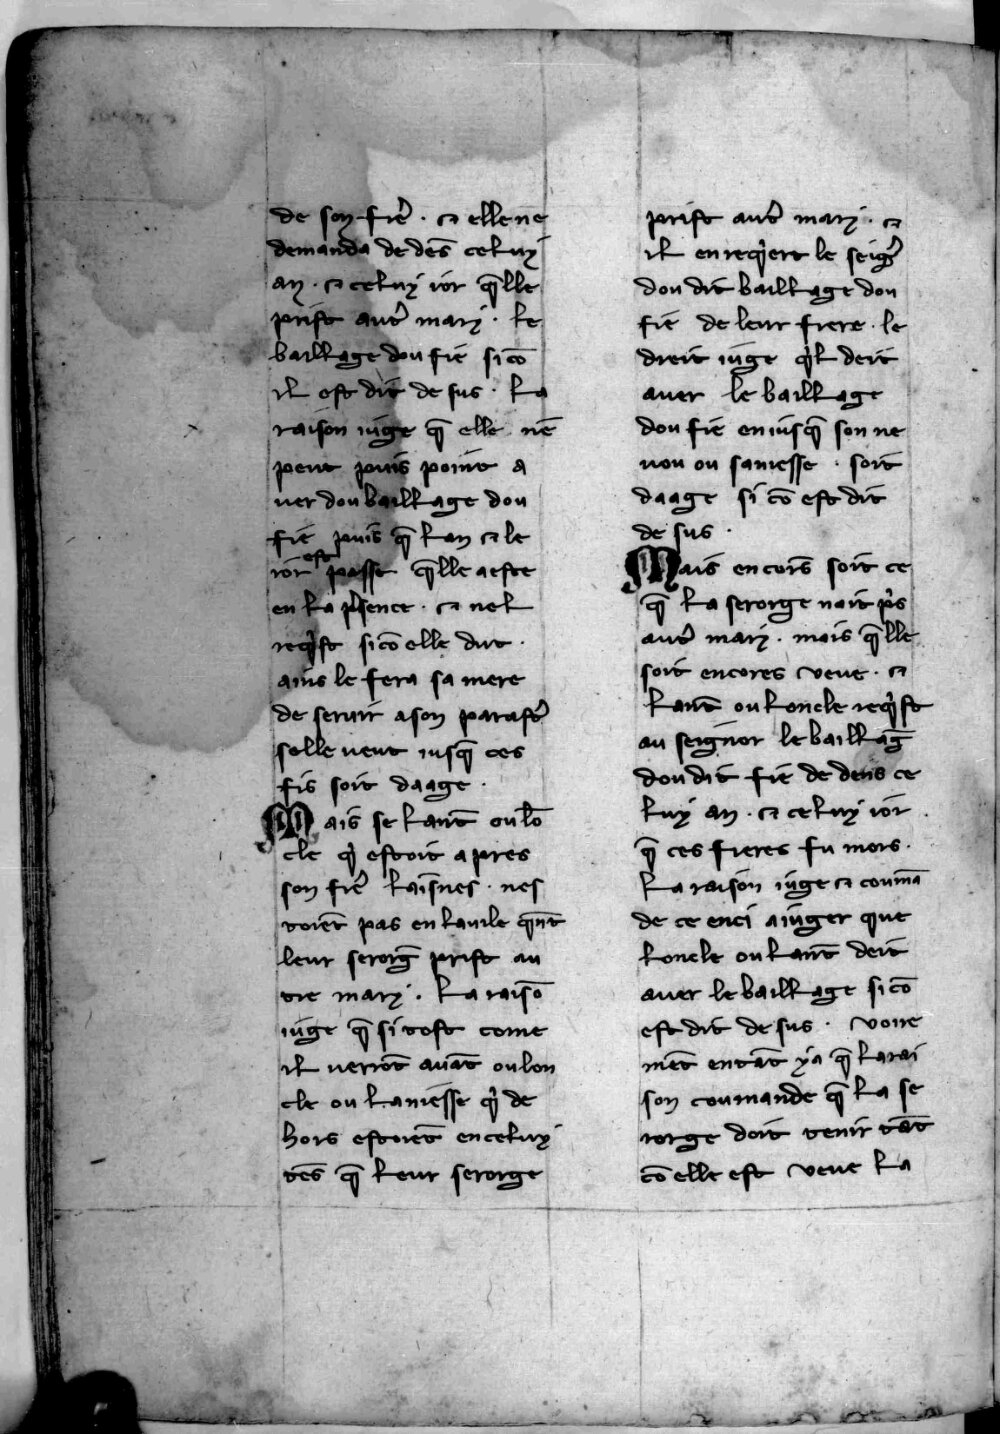 de son frẽ · ⁊ elle ne
demanda de dẽs celuy
an · ⁊ celuy ior q̃lle
prist autr̃ mary · le
baillage dou fie si cõ
il est dit de sus · la
raison iuge q̃ elle nẽ
peut puis point a
uer dou baillage dou
fie puis q̃ lan ⁊ le
ior est passe q̃lle a este
en la p̃sence · ⁊ nel
req̃st si cõ elle dut ·
ains le fera sa mere
de seruir a son parastr̃
selle ueut iusq̃ ces
fis soit daage ·
Mais se lañt ou lõ
cle q̃ estoit apres
son frẽ laisnes · nes
toiẽt pas en la uile q̃nt
leur serorg̃ prist au
tre mary · la raisõ
iuge q̃ si tost come
il uerrõt auãt ou lon
cle ou la niesse q̃ de
hors estoiẽt en celuy
tẽs q̃ leur serorge
prist autr̃ mary · ⁊
il en req̃ert le seigr̃
dou dit baillage dou
fie de leur frere · le
dreit iuge q̃l deit
auer le baillage
dou fie en iusq̃ son ne
uou ou sa niesse · soit
daage si cõ est dit
de sus ·
Mais encors̃ soit ce
q̃ la serorge nait p̃s
autr̃ mary · mais q̃lle
soit encores veue · ⁊
lañt ou loncle req̃st
au seignor le baillag̃
dou dit fie de dens ce
luy an · ⁊ celuy ior
q̃ ces freres fu mors ·
la raison iuge ⁊ coumã
de ce enci a iuger que
loncle ou lañt deit
auer le baillage si cõ
est dit de sus · voire
mẽt entãt ya q̃ la rai
son coumande q̃ la se
rorge doit tenir tãt
cõ elle est veue la